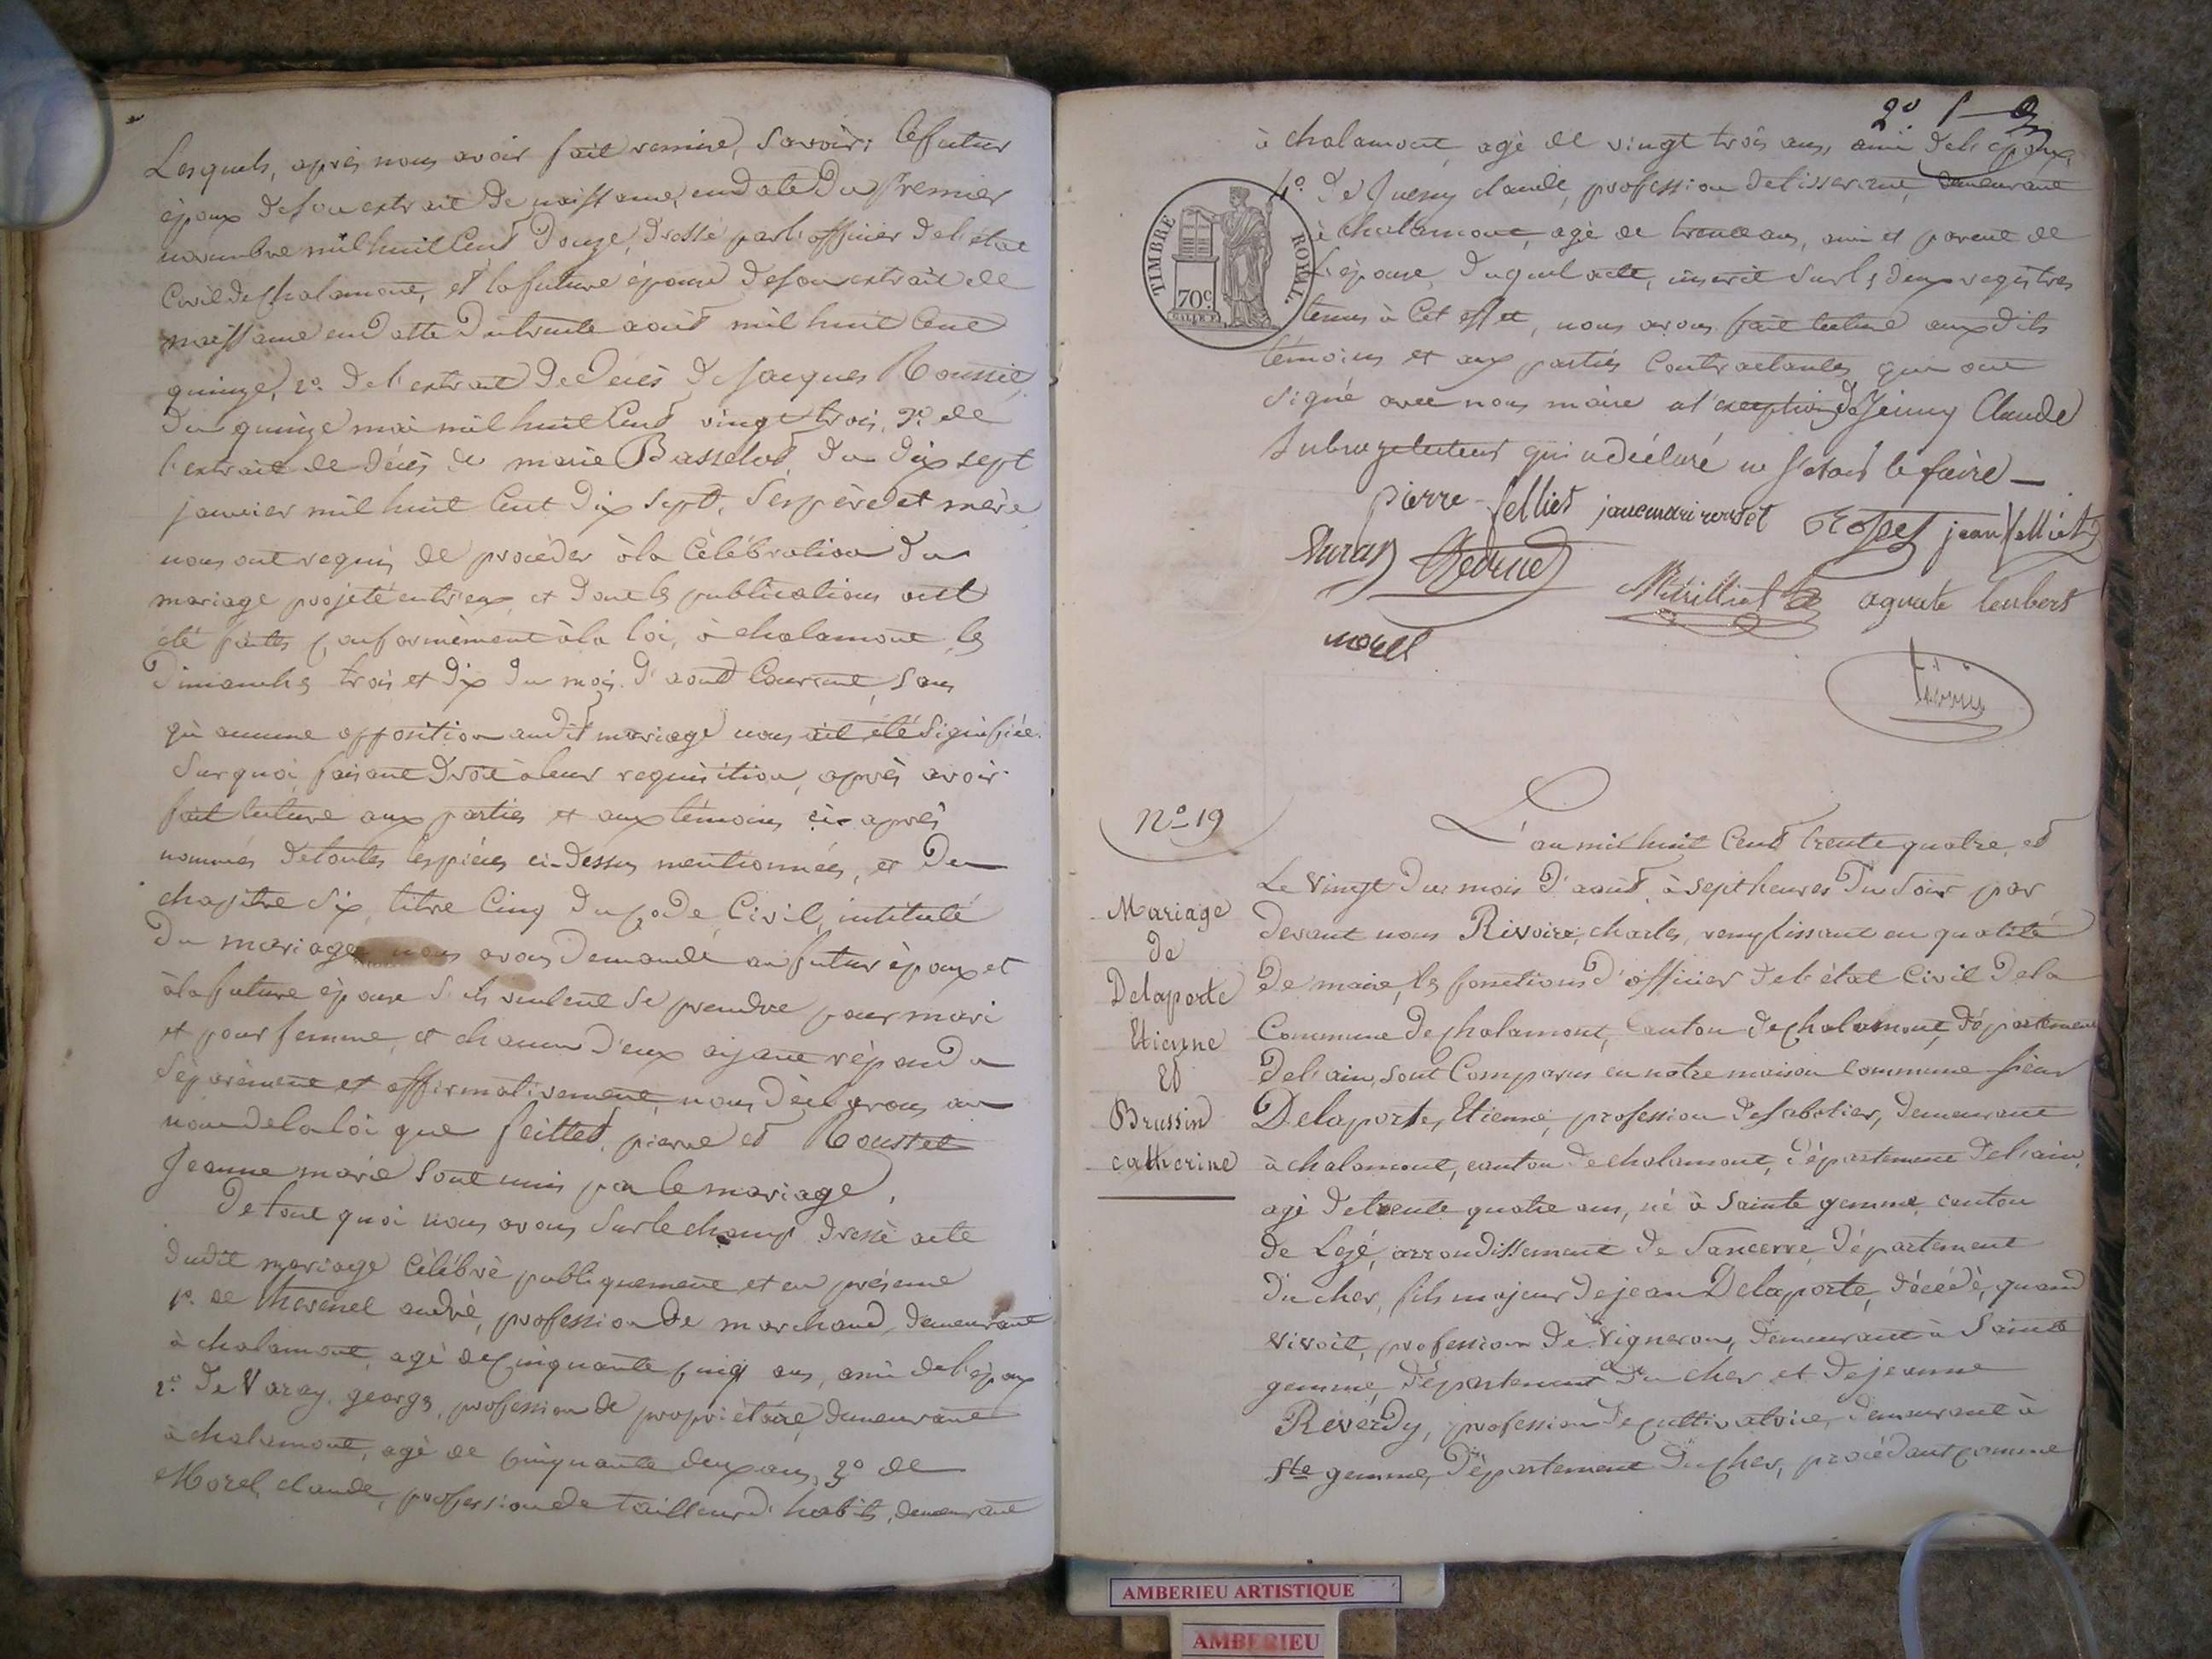 Lesquels, après nous avoir fait remise, Savoir: le futur
époux de son extrait de naissance, en date du premier
novembre mil huit Cent Douze, dressé par l'officier de l'état
Civil de chalamont, et la future épouse de son extrait de
naissance en datte du trente août mil huit Cent
quinze, 2º. de l'extrait de décès de jacques Roussèt,
du quinze mai mil huit Cent vingt trois, 3º. de
l'extrait de décès de marie Basselot du dix sept
janvier mil huit Cent dix Sept, Ses père et mère
nous ont requis de procéder à la Célébration du
mariage projeté entr'eux, et dont les publications ont
été faites conformément à la loi, à chalamont les
Dimanches trois et dix du mois d'aout Courant, Sans
qu'aucune opposition audit mariage nous ait été Signifiée.
Sur quoi, faisant droit à leur requisition, après avoir
fait lecture aux parties et aux témoins ci-après
nommés de toutes les pièces ci-dessus mentionnées, et du
chapitre Six, titre Cinq du Code Civil, intitulé
Du mariage nous avons demandé au futur époux et
à la future épouse s'ils veulent se prendre pour mari
et pour femme, et chacun d'eux ayant répondu
Séparément et affirmativement, nous déclarons au
nom de la loi que feillet pierre et Rousset
Jeanne marie Sont unis par le mariage.
De tout quoi nous avons Sur le champ dressé acte
dudit mariage Célébré publiquement et en présence
1º. de andré, profession de marchand, demeurant
à chalamont, agé de cinquante cinq ans, ami de l'époux
2º. De Varay georges, profession de propriétaire, demeurant
à chalamont, agé de cinquante deux ans, 3º de
Morel claude, profession de tailleur d'habits, demeurant
à chalamont, agé de vingt trois ans, ami de l'époux,
4º. De claude, profession de tisserand, demeurant
à chalamont, agé de trente ans, ami et parent de
l'épouse, duquel acte, inscrit sur les deux registres
tenus à Cet effet, nous avons fait lecture aux dits
témoins et aux parties Contractantes qui ont
Signé avec nous maire a l'exception de Claude
Subrogetuteur qui a déclaré ne Savoir le faire
pierre felliet janemari rousèt jean felliet
agnate
morel
TIMBRE ROYAL.
70c.
Nº 19
Mariage
de
Delaporte
Etienne
Et
Brussin
catherine
L'an mil huit Cent trente quatre, et
Le Vingt du mois d'août, à sept heures du Soir par
devant nous Rivoire, charles, remplissant en qualité
de maire, les fonctions d'officier de l'état Civil de la
Commune de chalamont, canton de chalamont, département
de l'ain, Sont Comparus en notre maison commune Sieur
Delaporte, Etienne, profession de Sabotier, demeurant
à chalamont, canton de chalamont, département de l'ain,
agé de trente quatre ans, né à Sainte gemme canton
de Leré, arrondissement de Sancerre, département
du cher, fils majeur de jean Delaporte, décédé, quand
vivoit, profession de Vigneron, demeurant à Sainte
gemme, département du cher et de jeanne
Reverdy, profession de cultivatrice, demeurant à
Ste gemme, département du cher, procédant comme
AMBERIEU ARTISTIQUE
AMBERIEU